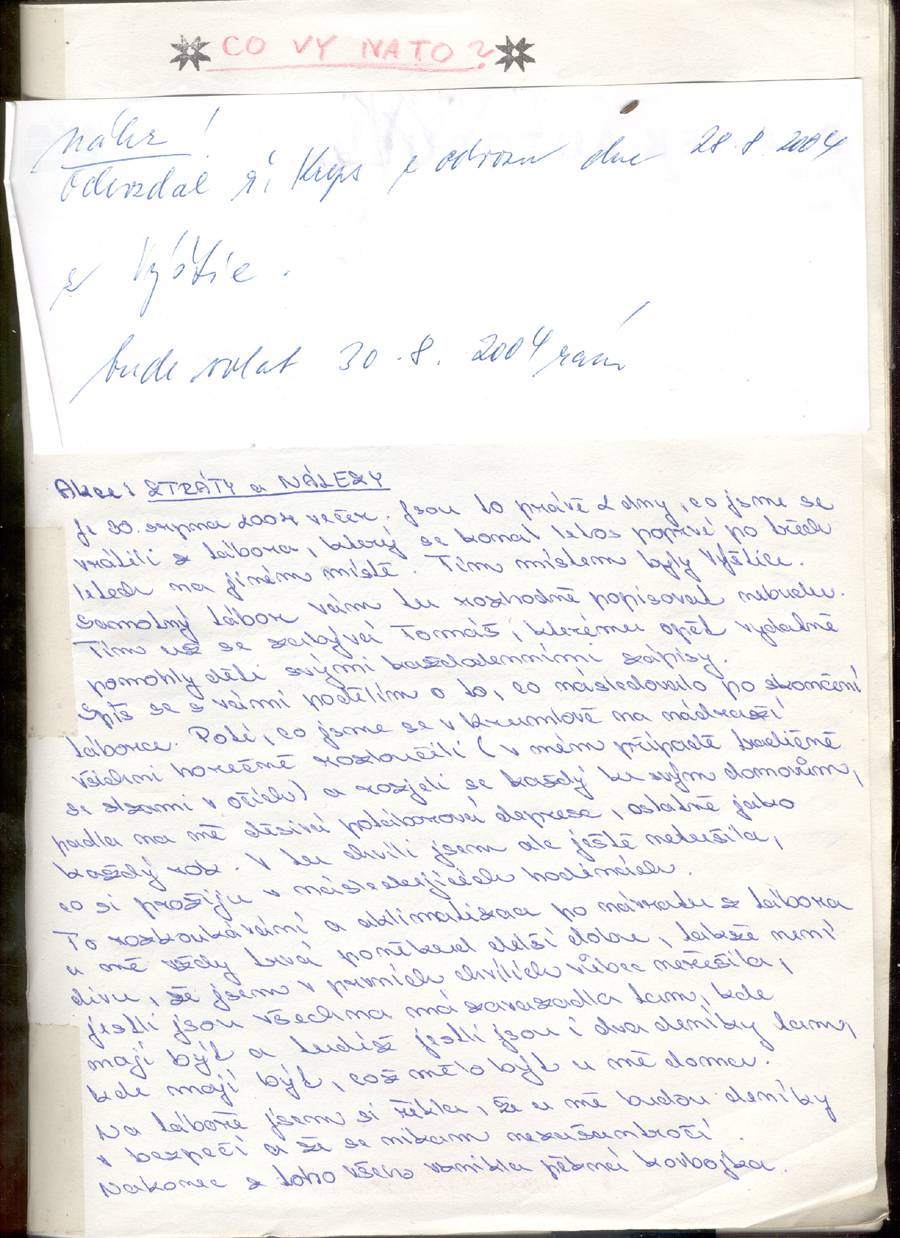 CO VY NA TO?
Nález!
Odevzdal ři Kryps z odvozu dne 28.8.2004
z Výštic.
bude volat 30.8.2004 rání
Akce: ZTRÁTY a NÁLEZY
Je 30. srpna 2004 večer. Jsou to právě 2 dny, co jsme se
vrátili z tábora, který se konal letos poprvé po třech
letech na jiném místě. Tím místem byly Výštice.
Samotný tábor vám tu rozhodně popisovat nebudu.
Tím už se zabývá Tomáš, kterému opět vydatně
pomohly děti svými každodenními zápisy.
Spíš se s vámi podělím o to, co následovalo po skončení
tábora. Poté, co jsme se v Krumlově na nádraží
všichni horečně rozloučili (v mém případě tradičně
se slzami v očích) a rozjeli se každý ke svým domovům,
padla na mě děsivá potáborová deprese, ostatně jako
každý rok. V tu chvíli jsem ale ještě netušila,
co si prožiju v následujících hodinách.
To rozkoukávání a aklimatizace po návratu z tábora
u mě vždy trvá poněkud delší dobu, takže není
divu, že jsem v prvních chvílích vůbec neřešila,
jestli jsou všechna má zavazadla tam, kde
mají být a tudíž jestli jsou i dva deníky tam,
kde mají být, což mělo být u mě doma.
Na táboře jsem si řekla, že u mě budou deníky
v bezpečí a že se nikam nezašantročí.
Nakonec z toho všeho vznikla pěkná kovbojka.